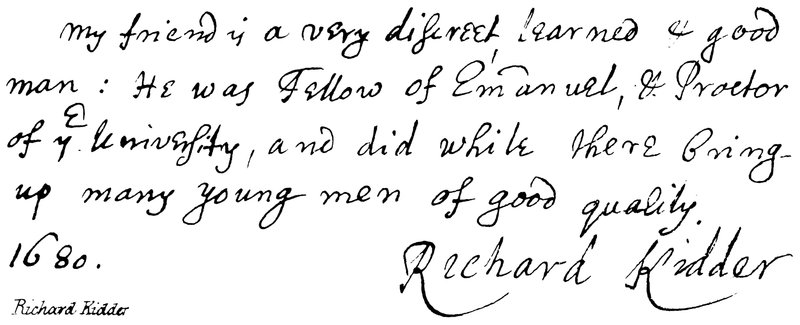 my friend is a very discreet, learned & good
man : He was Fellow of Emanuel, & Proctor
of yᵉ University, and did while there bring
up many young men of good quality.
1680. Richard Kidder
Richard Kidder